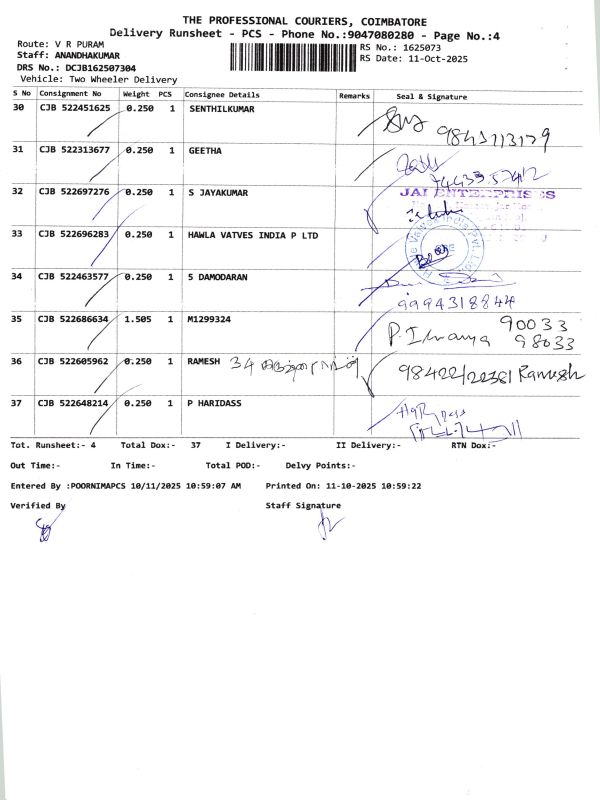 THE PROFESSIONAL COURIERS, COIMBATORE
Delivery Runsheet - PCS - Phone No.:9047080280 - Page No.:4
Route: V R PURAM
Staff: ANANDHAKUMAR
DRS No.: DCJB162507304
Vehicle: Two Wheeler Delivery
RS No.: 1625073
RS Date: 11-Oct-2025
S No Consignment No Weight PCS Consignee Details Remarks Seal & Signature
30 CJB 522451625 0.250 1 SENTHILKUMAR
31 CJB 522313677 0.250 1 GEETHA
32 CJB 522697276 0.250 1 S JAYAKUMAR
JAI ENTERPRISES
33 CJB 522696283 0.250 1 HAWLA VATVES INDIA P LTD
34 CJB 522463577 0.250 1 S DAMODARAN
9994318844
35 CJB 522686634 1.505 1 M1299324
90033
98033
36 CJB 522605962 0.250 1 RAMESH 34
98422/22381 Ramesh
37 CJB 522648214 0.250 1 P HARIDASS
Tot. Runsheet:- 4 Total Dox:- 37 I Delivery:- II Delivery:- RTN Dox:-
Out Time:- In Time:- Total POD:- Delvy Points:-
Entered By :POORNIMAPCS 10/11/2025 10:59:07 AM Printed On: 11-10-2025 10:59:22
Verified By Staff Signature